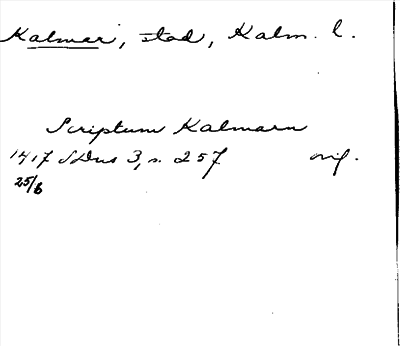 Kalmar, stad, Kalm. l.
Scriptum Kalmarn
1417 SDns 3, s. 257 orig.
25/6